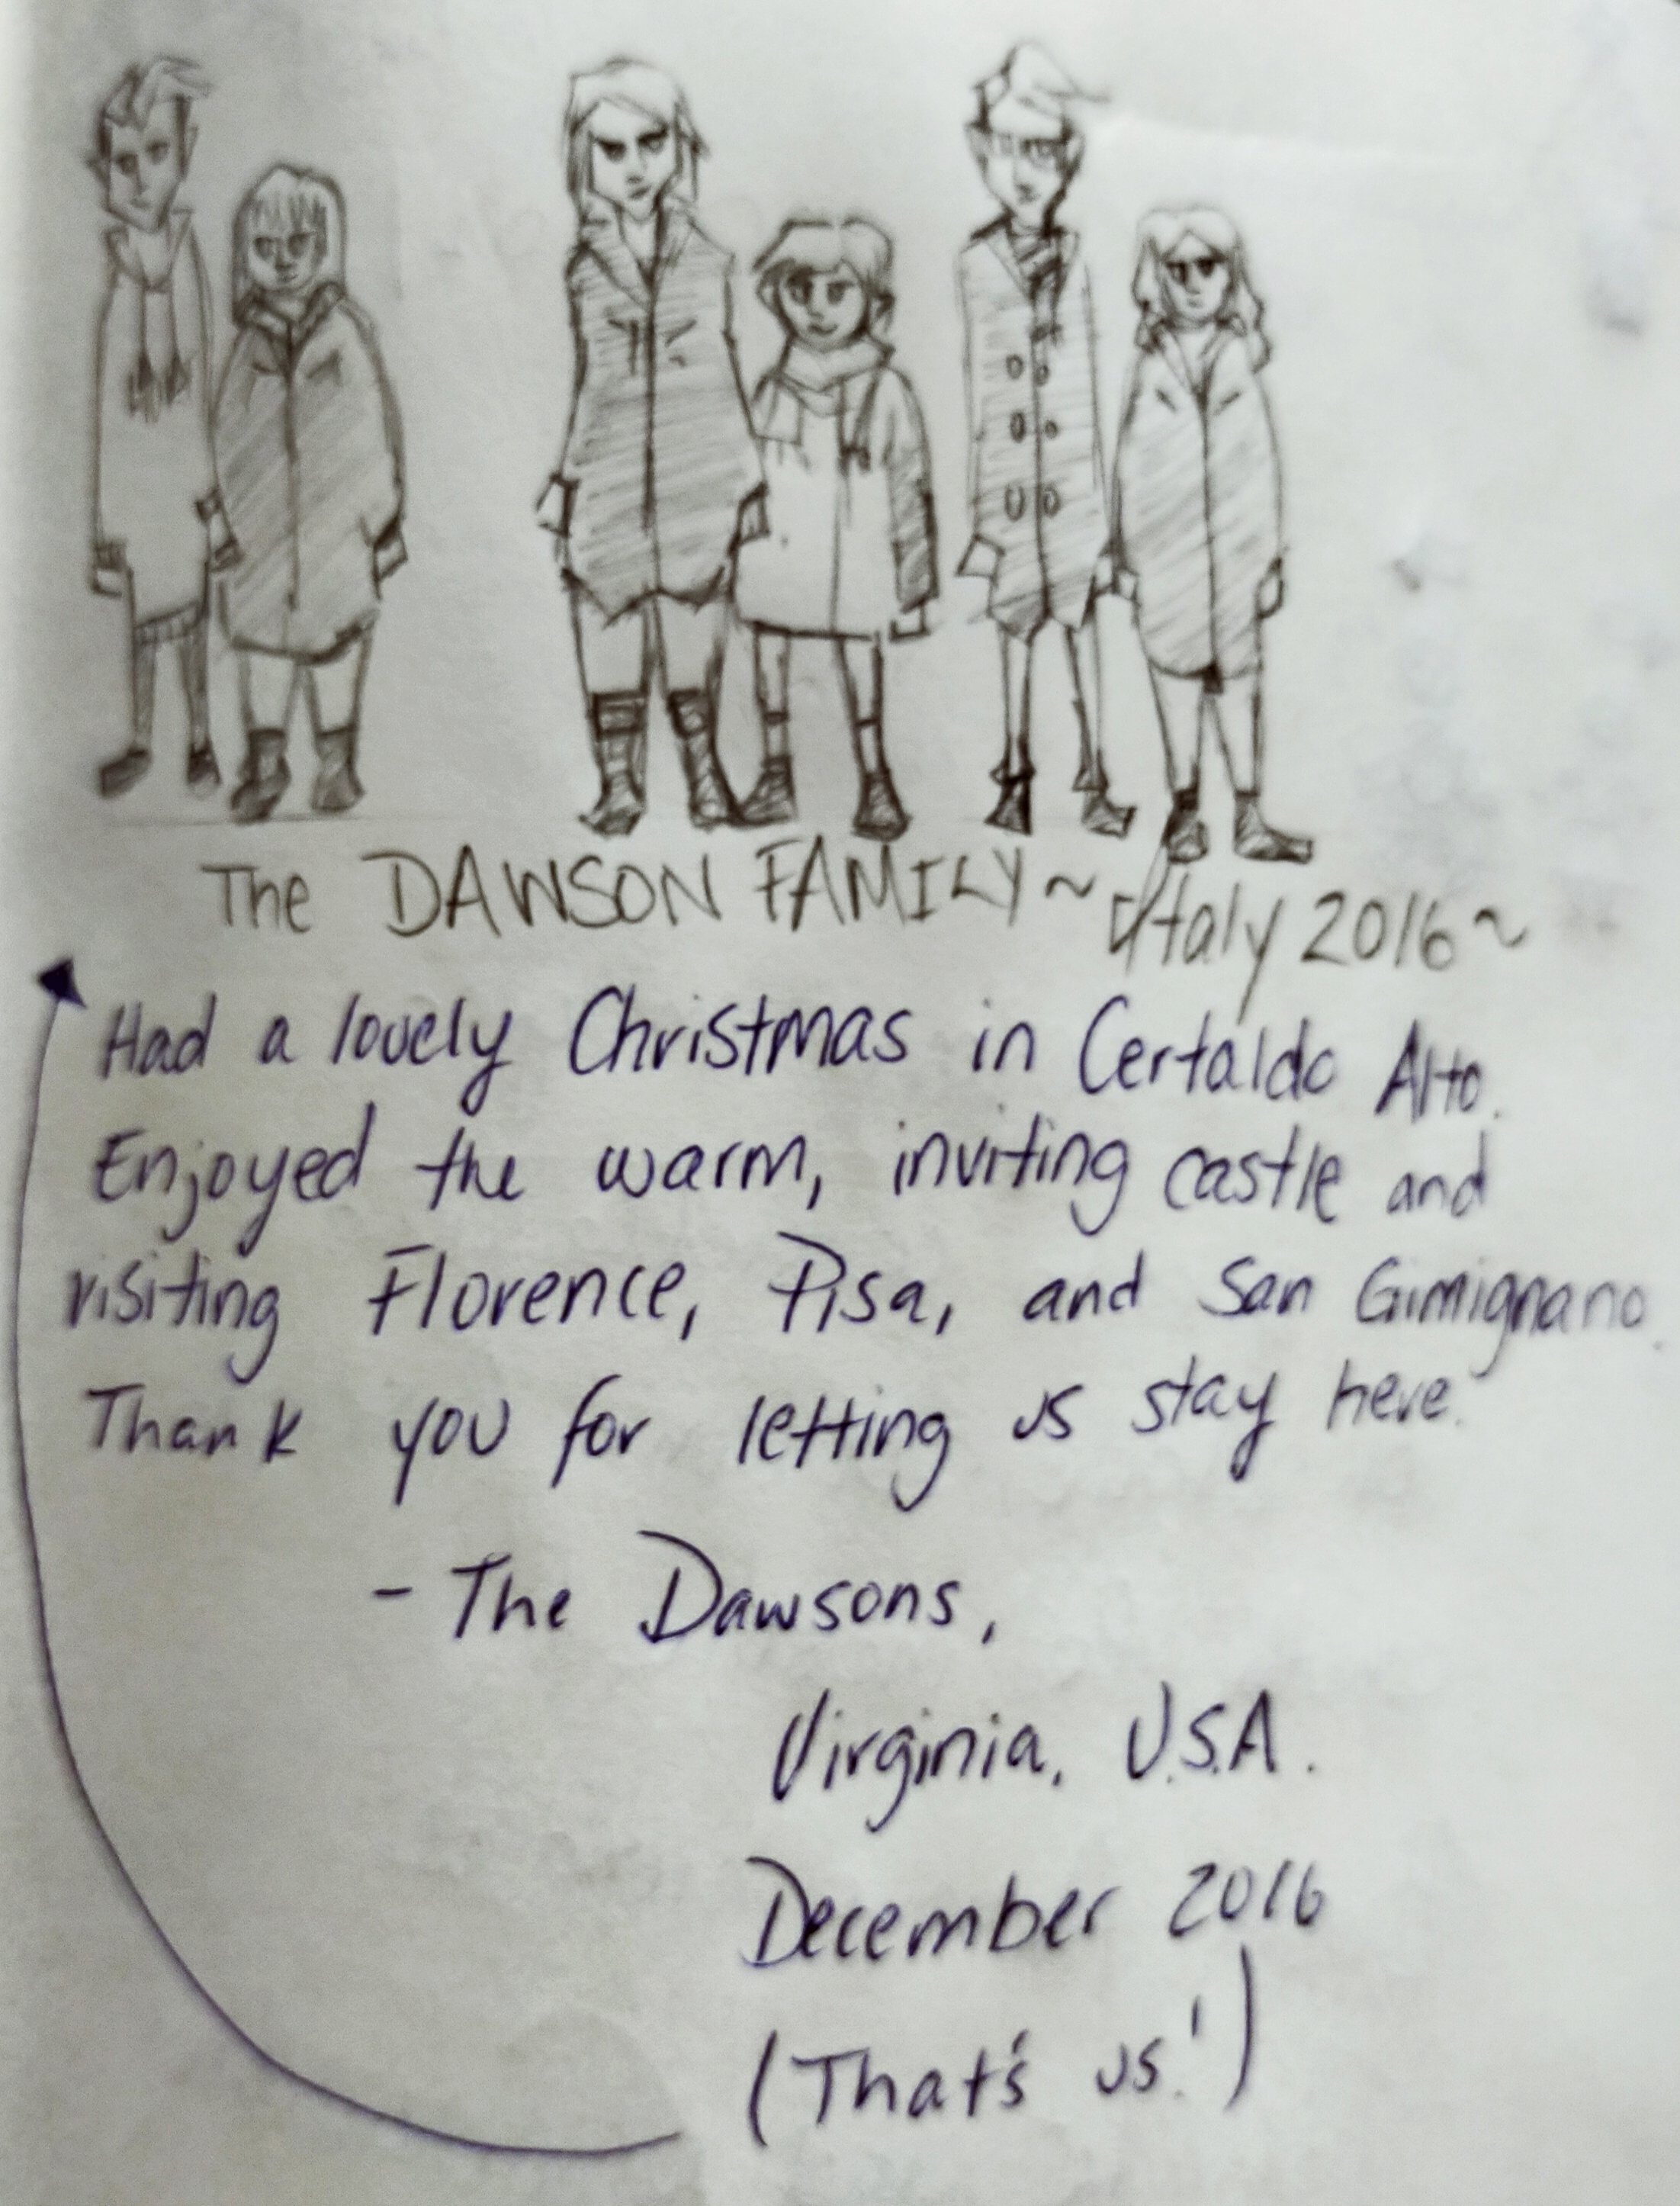 The DAWSON FAMILY ~ Italy 2016 ~
Had a lovely Christmas in Certaldo Alto.
Enjoyed the warm, inviting castle and
visiting Florence, Pisa, and San Gimignano.
Thank you for letting us stay here.
- The Dawsons,
Virginia, U.S.A.
December 2016
(That's us!)